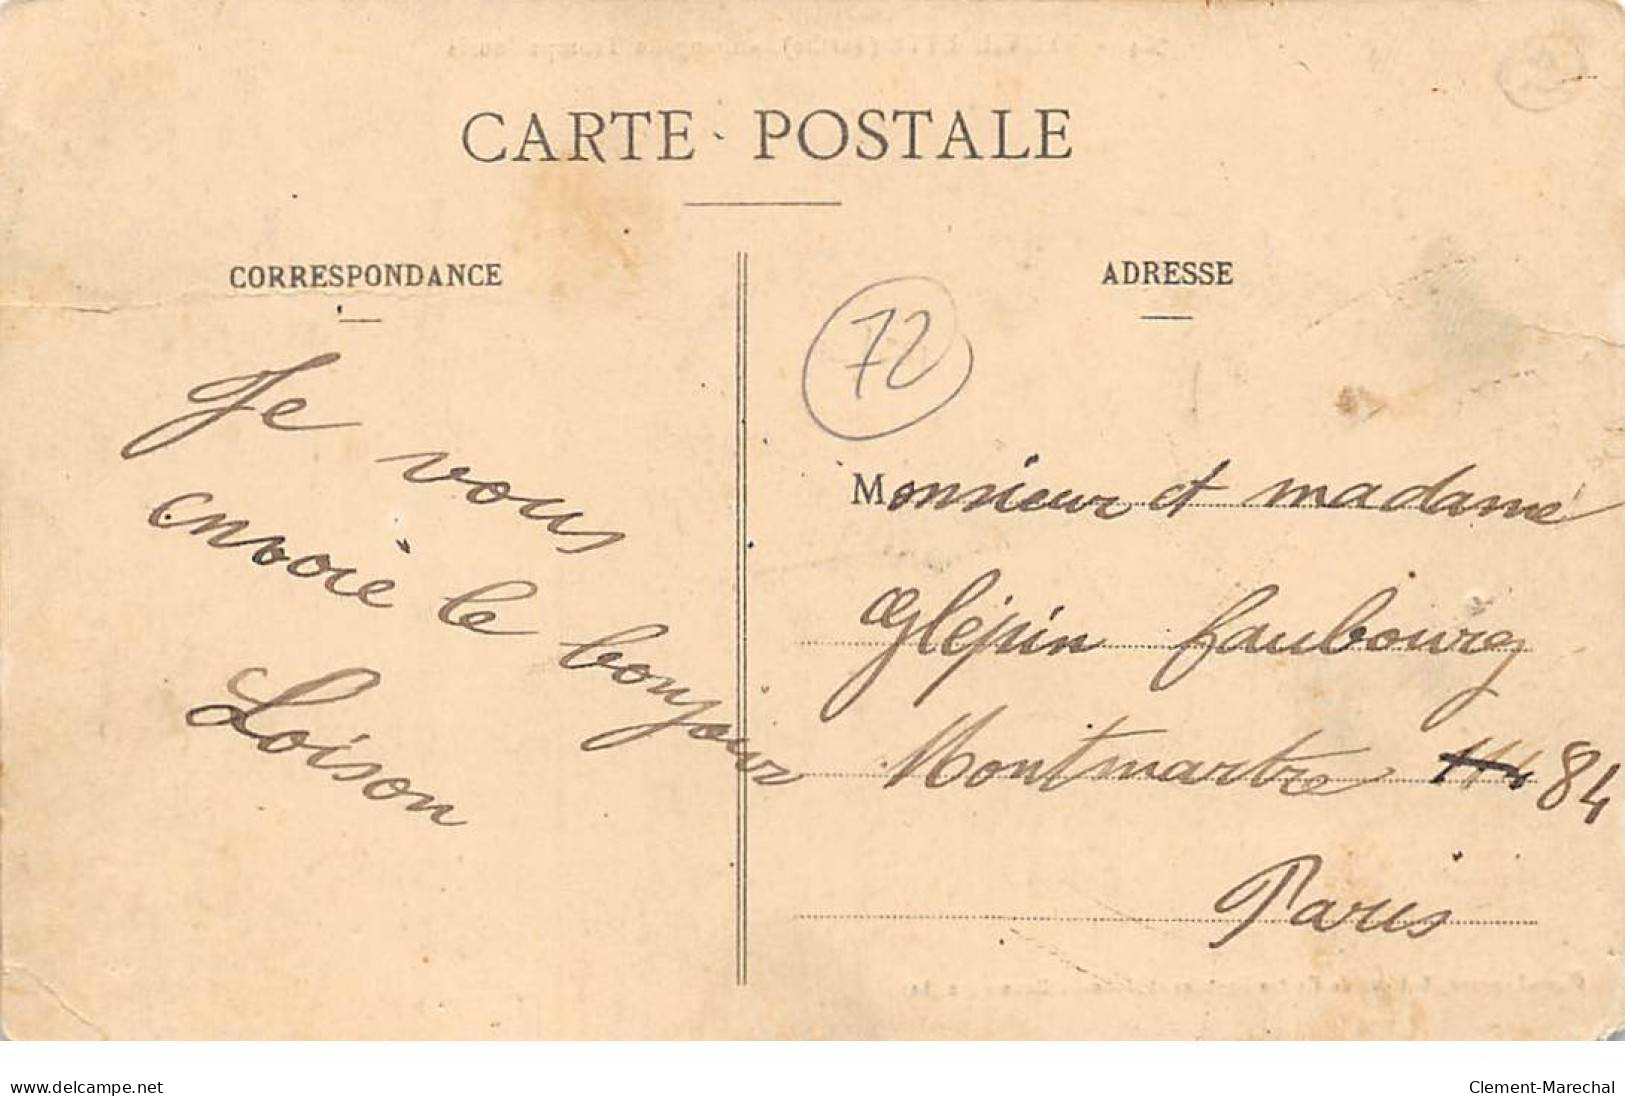 CARTE POSTALE
CORRESPONDANCE
Je vous
envoie le bonjour
Loison
ADRESSE
72
Monsieur et madame
Glépin faubourg
Montmartre 84
Paris
www.delcampe.net
Clement-Marechal